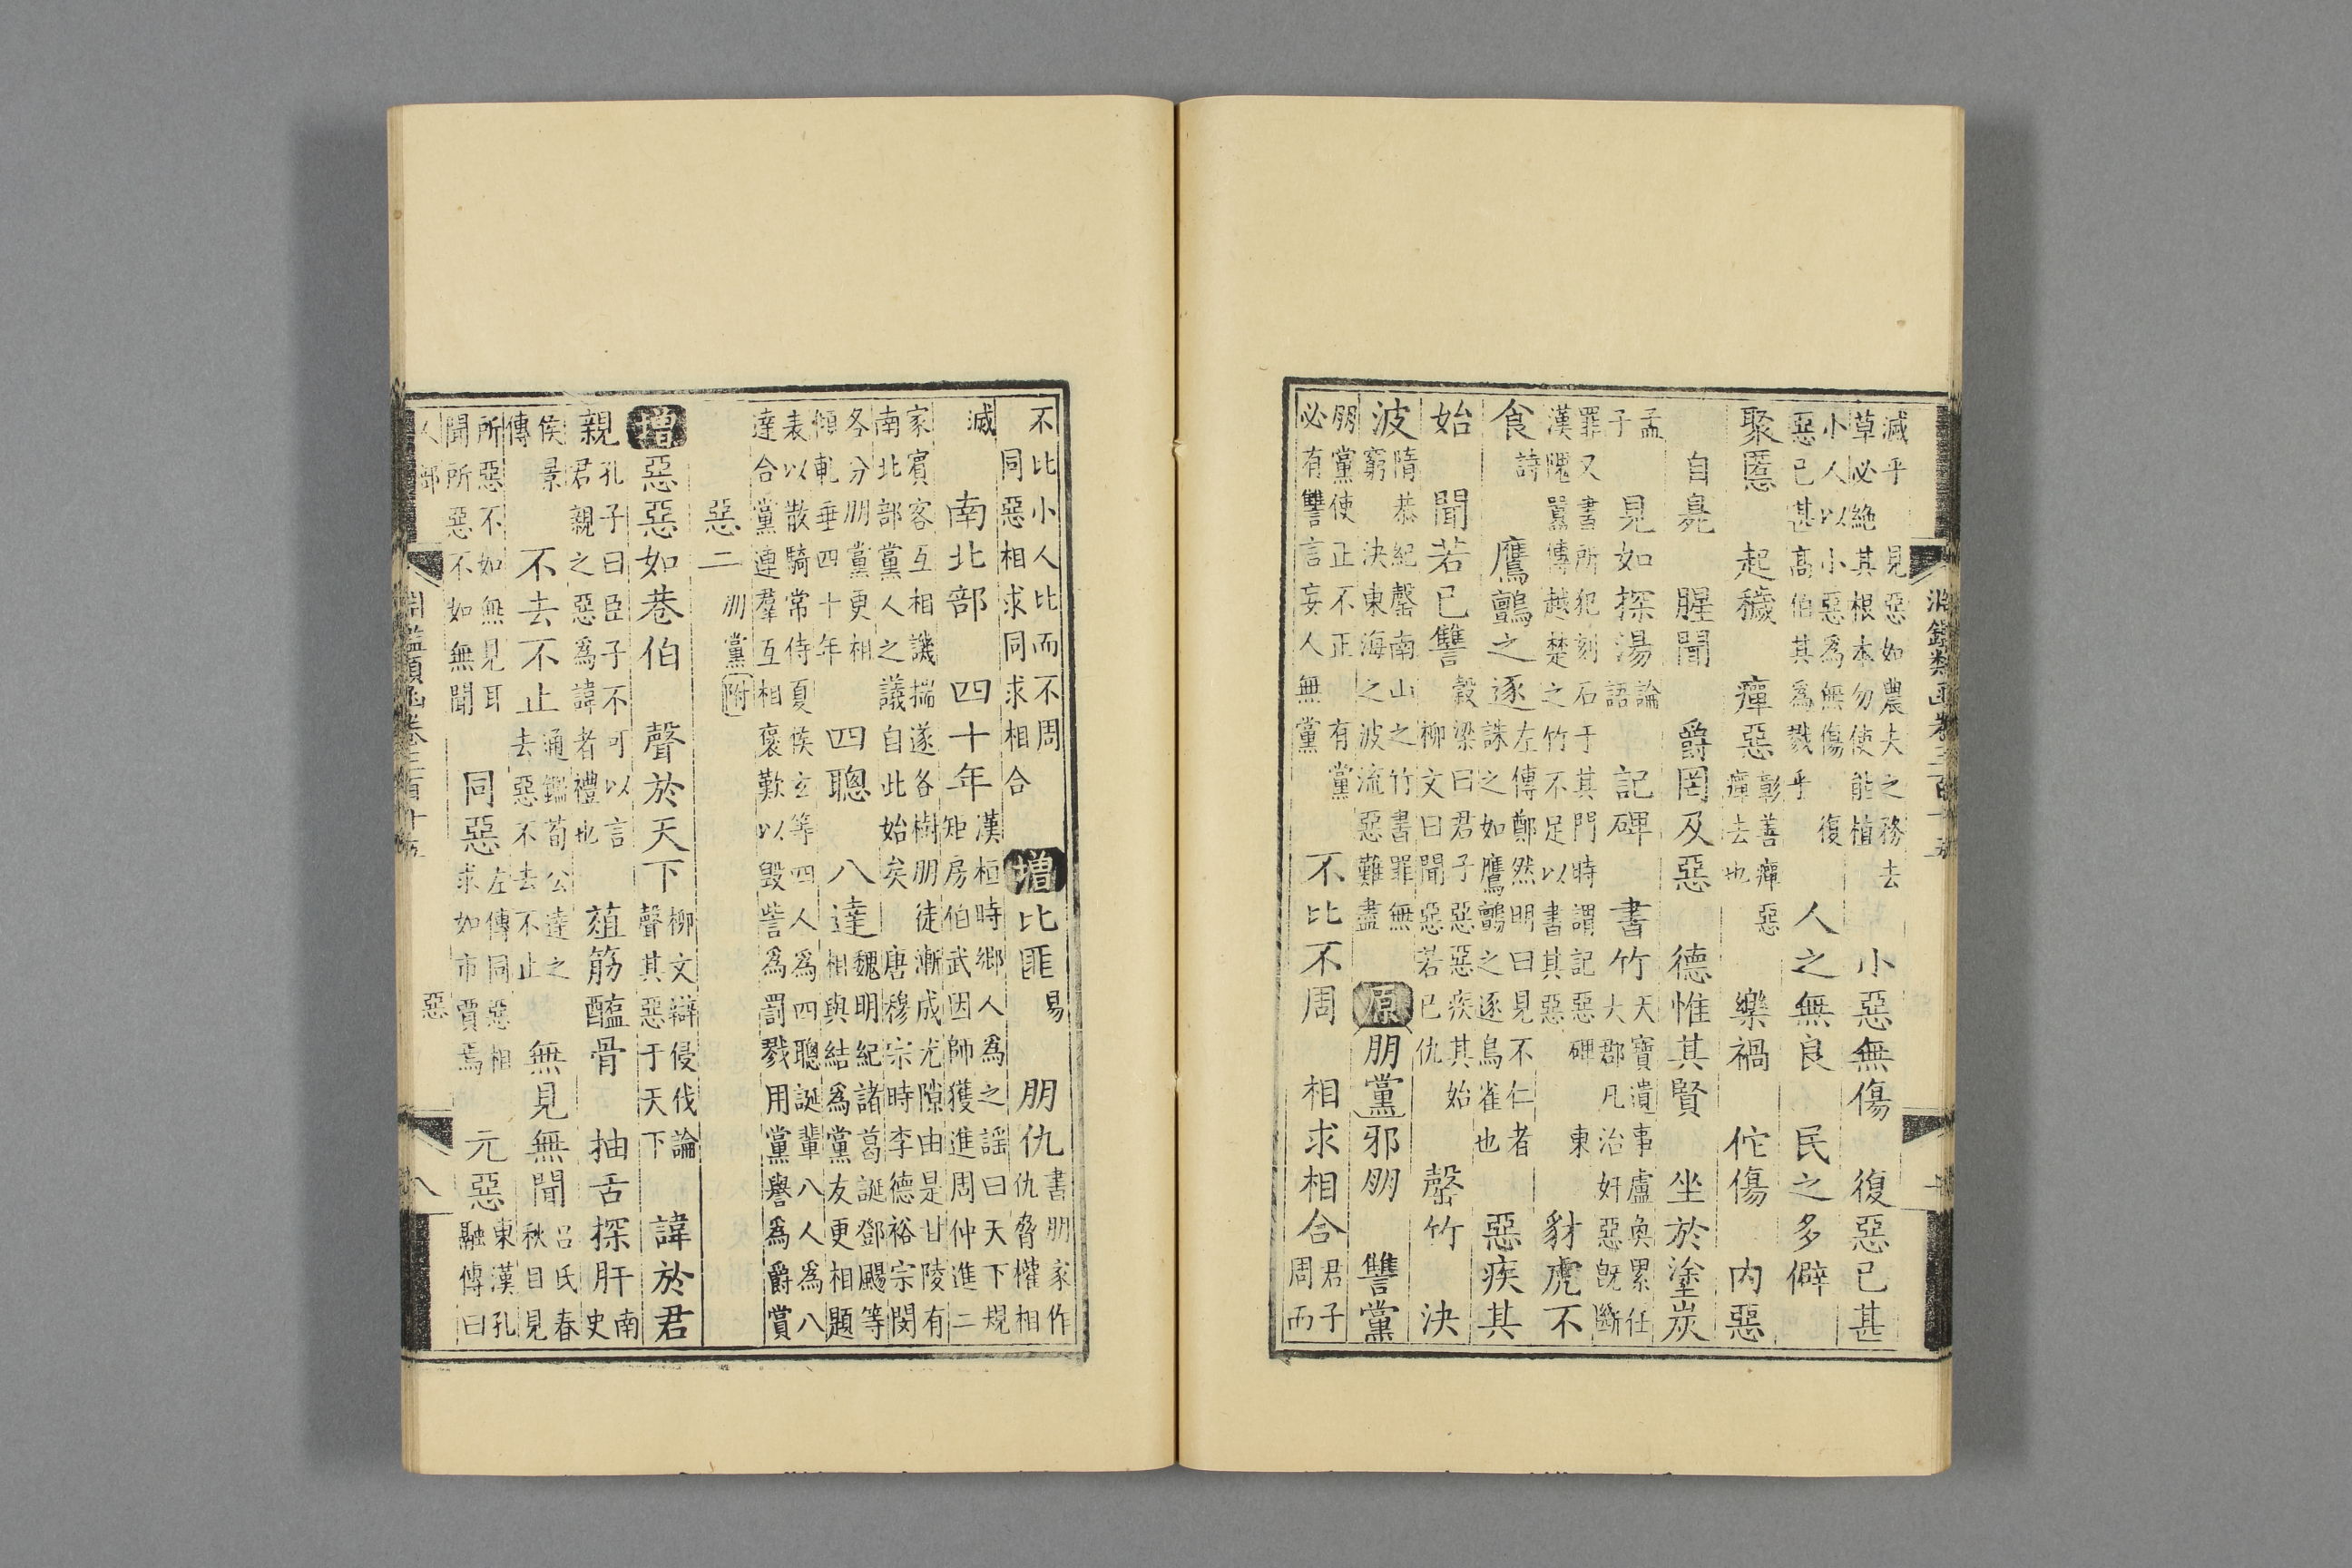 淵鑑類函卷三百十五
滅乎 見惡如農夫之務去
草必絶其根本勿使能植
小惡無傷 復惡已甚
小人以小惡爲無傷 復
惡已甚高伯其爲戮乎
人之無良 民之多僻
聚慝 起穢 癉惡
彰善癉惡
癉去也
樂禍 佗傷 内惡
自臭 腥聞 爵罔及惡 德惟其賢 坐於塗炭
孟
子
見如探湯
論
語
記碑 書竹
天寶遺事盧奐累任
大郡凡治奸惡旣斷
罪又書所犯刻石于其門時謂記惡碑 東
漢隗囂傳越楚之竹不足以書其惡
豺虎不
食
詩
鷹鸇之逐
左傳鄭然明曰見不仁者
誅之如鷹鸇之逐鳥雀也
惡疾其
始 聞若已讐
穀梁曰君子惡惡疾其始
柳文曰聞惡若已仇
罄竹 決
波
隋恭紀罄南山之竹書罪無
窮 決東海之波流惡難盡
原 朋黨邪朋 讐黨
朋黨使正不正 有黨
必有讐言妄人無黨
不比不周 相求相合
君子
周而
不比小人比而不周
同惡相求同求相合
增 比匪
易
朋仇
書朋家作
仇脅權相
滅
南北部 四十年
漢桓時鄉人爲之謠曰天下規
矩房伯武因師獲進周仲進二
家賓客互相譏揣遂各樹朋徒漸成尤隙由是甘陵有
南北部黨人之議自此始矣 唐穆宗時李德裕宗閔
各分朋黨更相
傾軋垂四十年
四聰 八達
魏明紀諸葛誕鄧颺等
相與結爲黨友更相題
表以散騎常侍夏侯玄等四人爲四聰誕輩八人爲八
達合黨連羣互相褒歎以毀訾爲罰戮用黨譽爲爵賞
惡二 朋黨附
增 惡惡如巷伯 聲於天下
柳文辯侵伐論
聲其惡于天下
諱於君
親
孔子曰臣子不可以言
君親之惡爲諱者禮也
葅筋醢骨 抽舌探肝
南
史
侯景
傳
不去不止
通鑑荀公達之
去惡不去不止
無見無聞
呂氏春
秋目見
所惡不如無見耳
聞所惡不如無聞
同惡
左傳同惡相
求如市賈焉
元惡
東漢孔
融傳曰
人部 淵鑑類函卷三百十五 惡 八